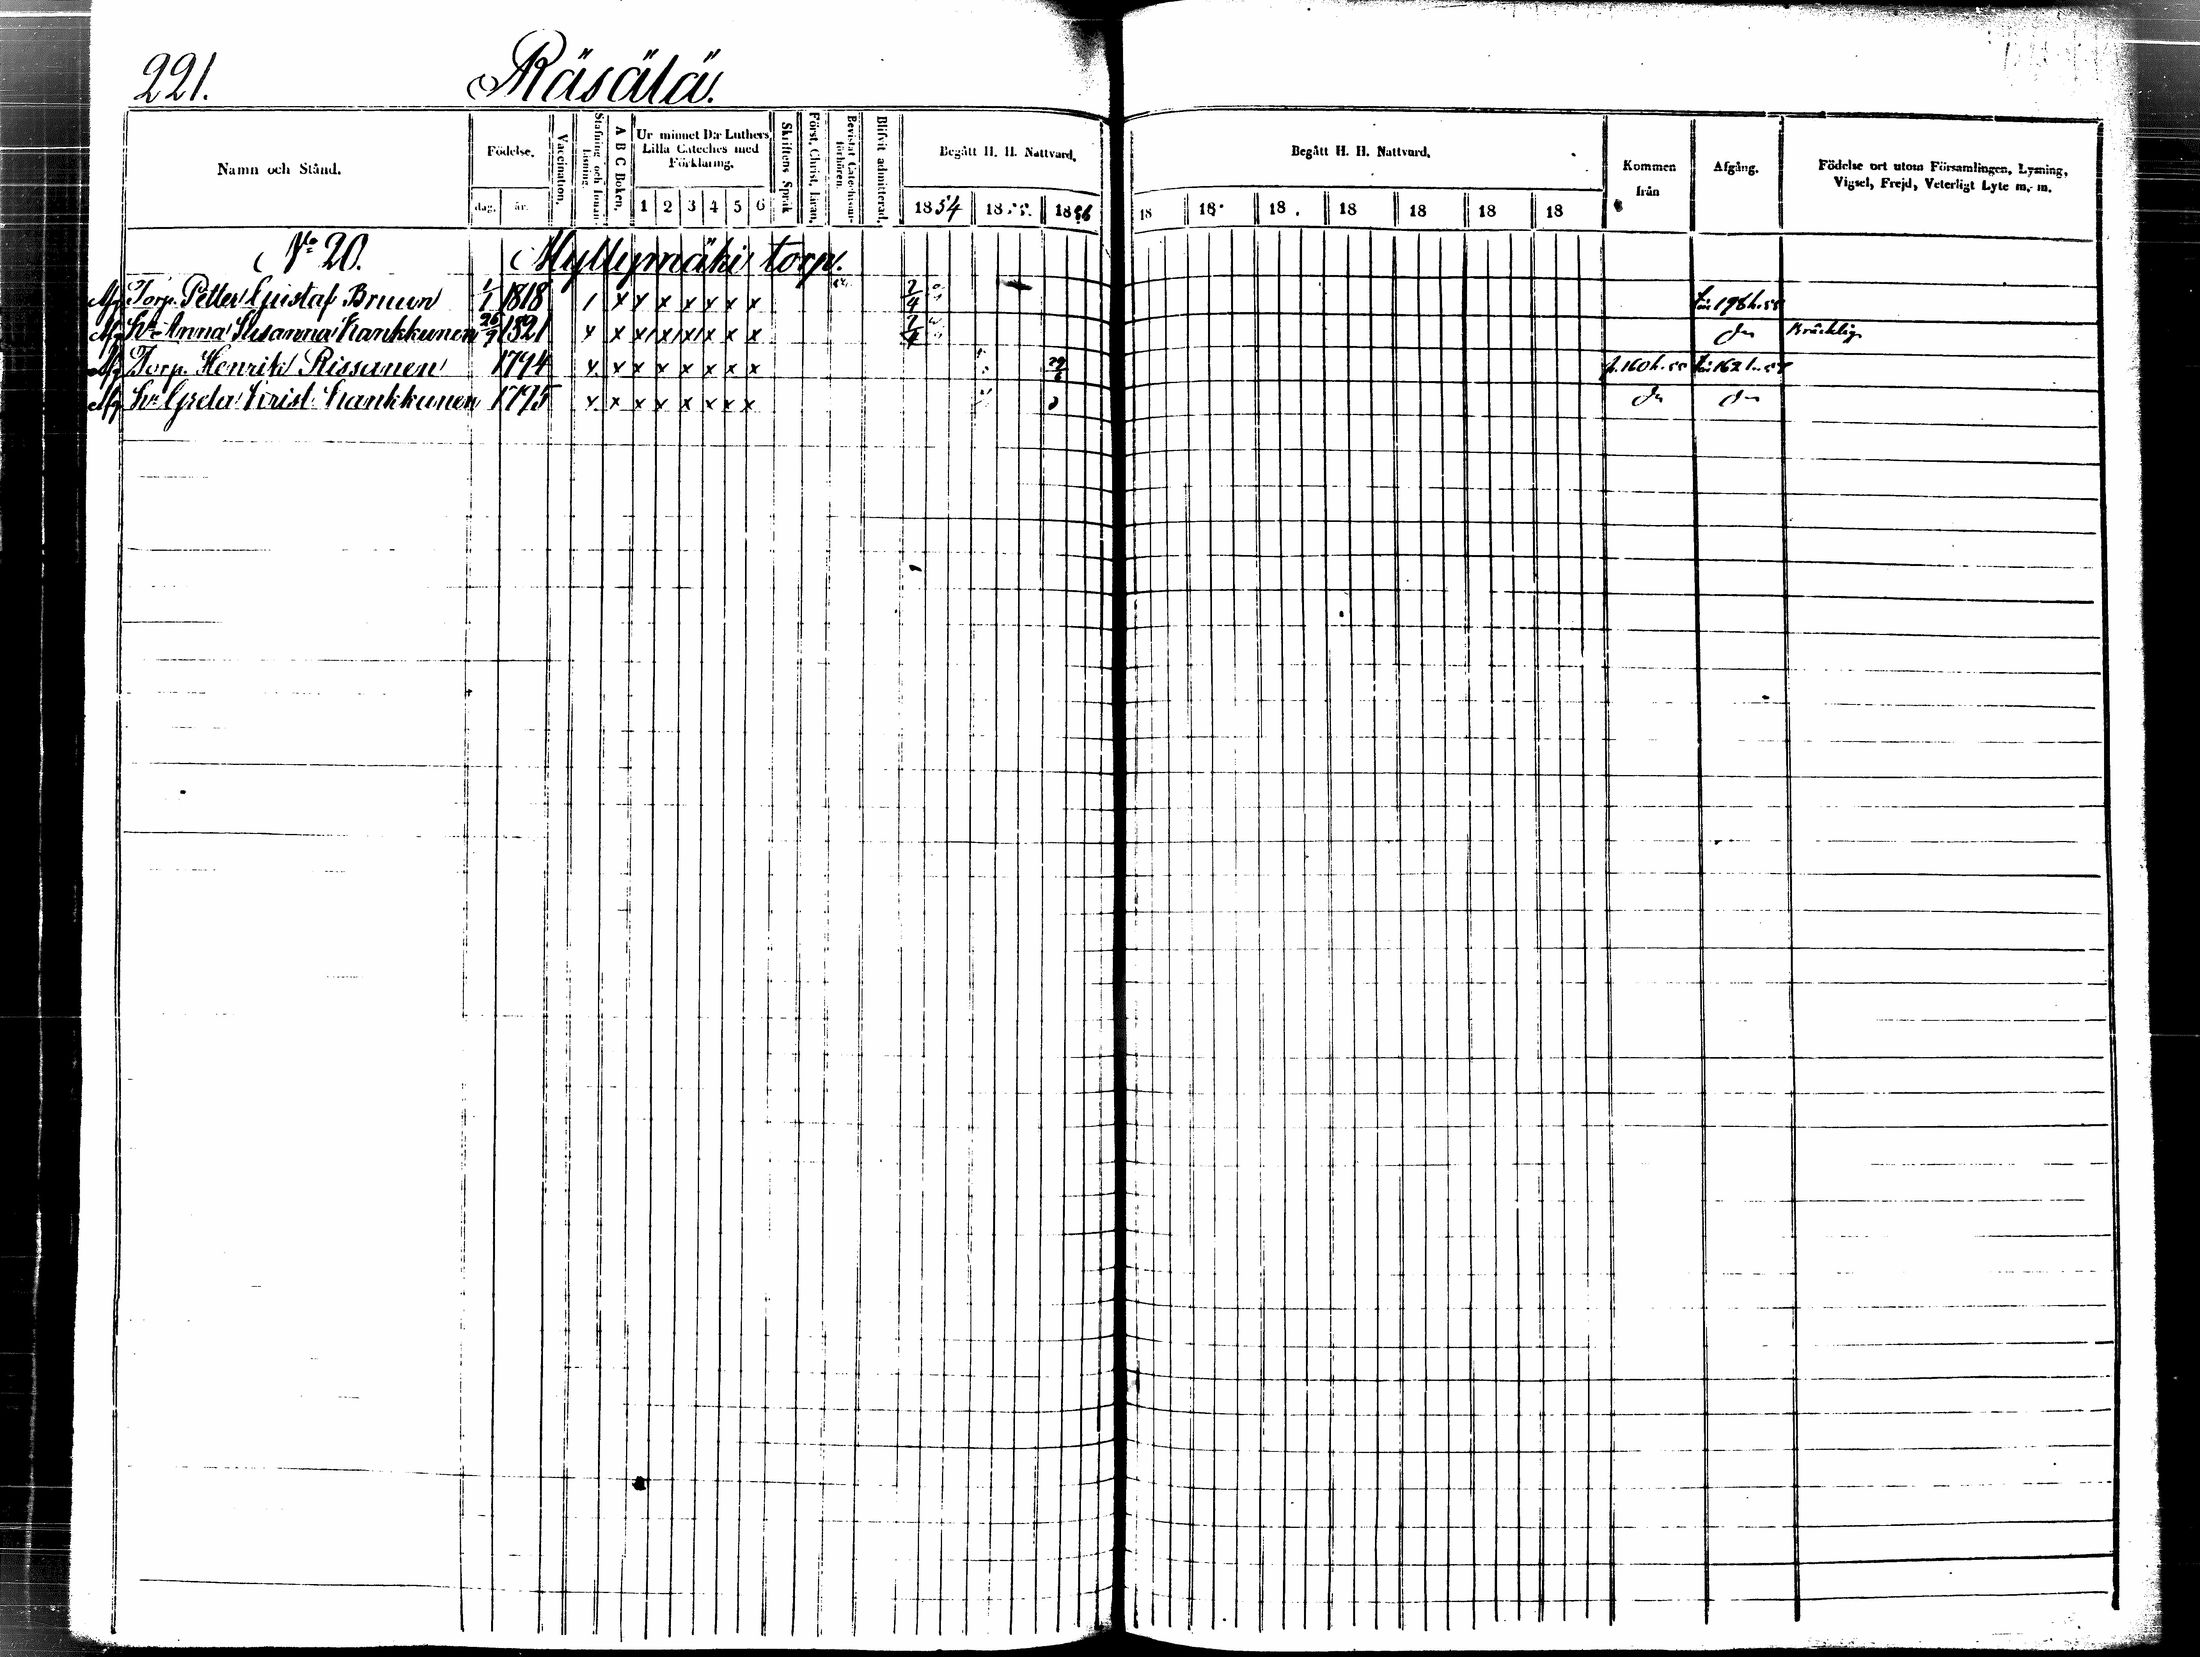 221. Räsälä.
Namn och Stånd. Födelse. Vaccination. Stafning och Innan läsning. A B C Boken. Ur minnet D:r Luthers Lilla Cateches med Förklaring. Skriftens Språk Först. Christ. Läran. Bevistat Catechismi förhören. Blifvit admitterad. Begått H. H. Nattvard. Begått H. H. Nattvard. Kommen från Afgång. Födelse ort utom Församlingen, Lysning, Vigsel, Frejd, Veterligt Lyte m. m.
dag. år. 1 2 3 4 5 6 1854 18 1856 18 18 18 18 18 18 18
No 20. Myllymäki torp.
Afg Torp. Petter Gustaf Bruun 1/1 1818 / x x x x x x x 2/4 198 h. 55
Afg Hu Anna Susanna Kankkunen 26/9 1821 x x x x x x x x 2/4 do Bräcklig
Afg Torp. Henrik Rissanen 1794 x x x x x x x x 29/6 fr. 160 h. 55 162
Afg Hu Greta Krist. Kankkunen 1795 x x x x x x x x do do